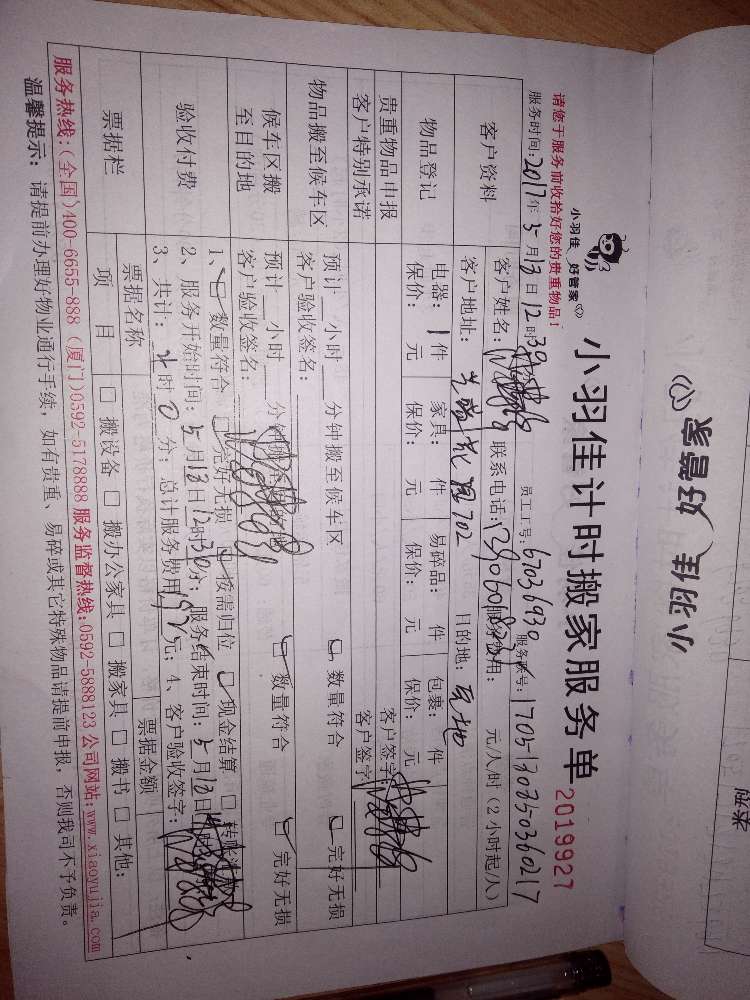 小羽佳 好管家
小羽佳 好管家
小羽佳计时搬家服务单 2019927
请您于服务前收拾好您的贵重物品!
服务时间:2017年5月13日12时30 员工工号:67036930 服务账号:
客户资料
客户姓名: 联系电话: 服务费用: 元/人时(2小时起/人)
客户地址: 702 目的地:
物品登记
电器:1件 家具: 件 易碎品: 件 包裹: 件
保价: 元 保价: 元 保价: 元 保价: 元
贵重物品申报 客户签字:
客户特别承诺 客户签字:
物品搬至候车区
预计 小时 分钟搬至候车区 数量符合 完好无损
客户验收签名:
候车区搬至目的地
预计 小时 分钟 数量符合 完好无损
客户验收签名:
验收付费
1、数量符合 完好无损 按需归位 现金结算
2、服务开始时间:5月13日12时30分;服务结束时间:5月13日
3、共计: 时0分;总计服务费用 元;4、客户验收签字:
票据栏
票据名称 票据金额
项目 搬设备 搬办公家具 搬家具 搬书 其他:
服务热线:(全国)400-6655-888 (厦门)0592-5178888 服务监督热线:0592-5888123 公司网站:www.xiaoyujia.com
温馨提示: 请提前办理好物业通行手续,如有贵重、易碎或其它特殊物品请提前申报,否则我司不予负责。